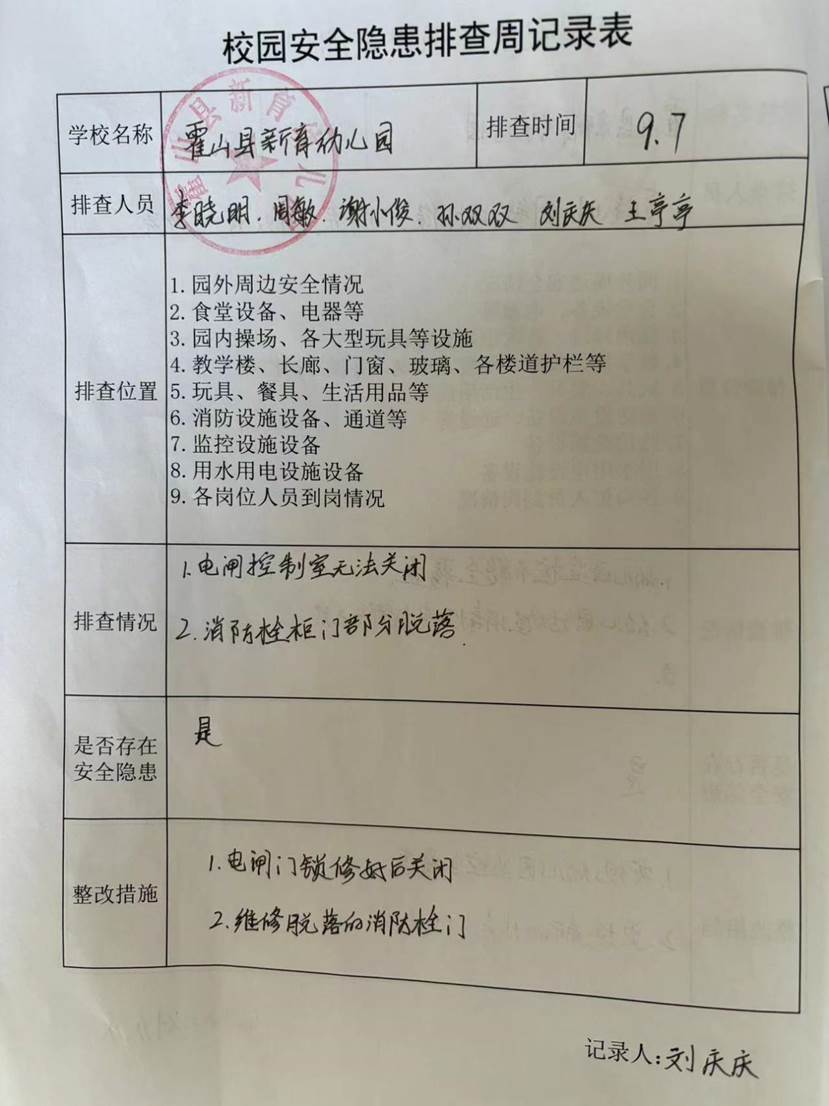 校园安全隐患排查周记录表
学校名称 霍山县新育幼儿园 排查时间 9.7
排查人员 李晓明. 周敏. 谢小俊. 孙双双 刘庆庆 王亭亭
排查位置
1. 园外周边安全情况
2. 食堂设备、电器等
3. 园内操场、各大型玩具等设施
4. 教学楼、长廊、门窗、玻璃、各楼道护栏等
5. 玩具、餐具、生活用品等
6. 消防设施设备、通道等
7. 监控设施设备
8. 用水用电设施设备
9. 各岗位人员到岗情况
排查情况
1. 电闸控制室无法关闭
2. 消防栓柜门部分脱落.
是否存在
安全隐患
是
整改措施
1. 电闸门锁修好后关闭
2. 维修脱落的消防栓门
记录人:刘庆庆